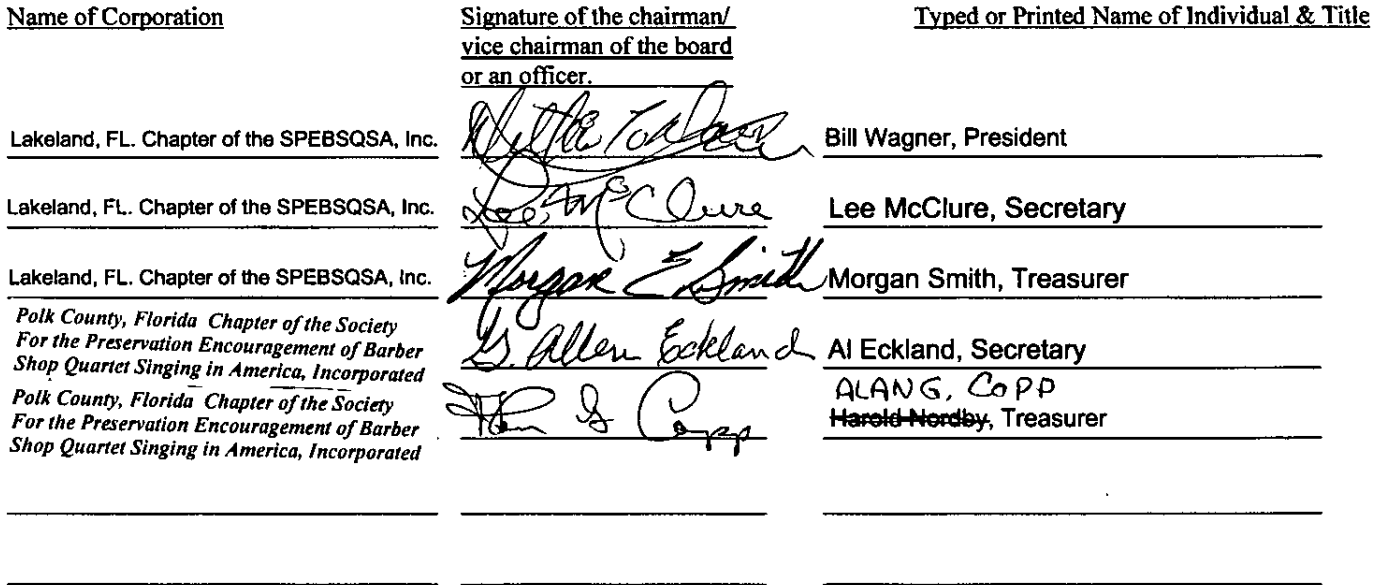 Name of Corporation
Signature of the chairman/
vice chairman of the board
or an officer.
Typed or Printed Name of Individual & Title
Lakeland, FL. Chapter of the SPEBSQSA, Inc.
Bill Wagner, President
Lakeland, FL. Chapter of the SPEBSQSA, Inc.
Lee McClure
Lee McClure, Secretary
Lakeland, FL. Chapter of the SPEBSQSA, Inc.
Morgan E Smith
Morgan Smith, Treasurer
Polk County, Florida Chapter of the Society
For the Preservation Encouragement of Barber
Shop Quartet Singing in America, Incorporated
G. Allen Eckland
Al Eckland, Secretary
Polk County, Florida Chapter of the Society
For the Preservation Encouragement of Barber
Shop Quartet Singing in America, Incorporated
Alan G Copp
ALAN G. COPP
Harold Nordby, Treasurer